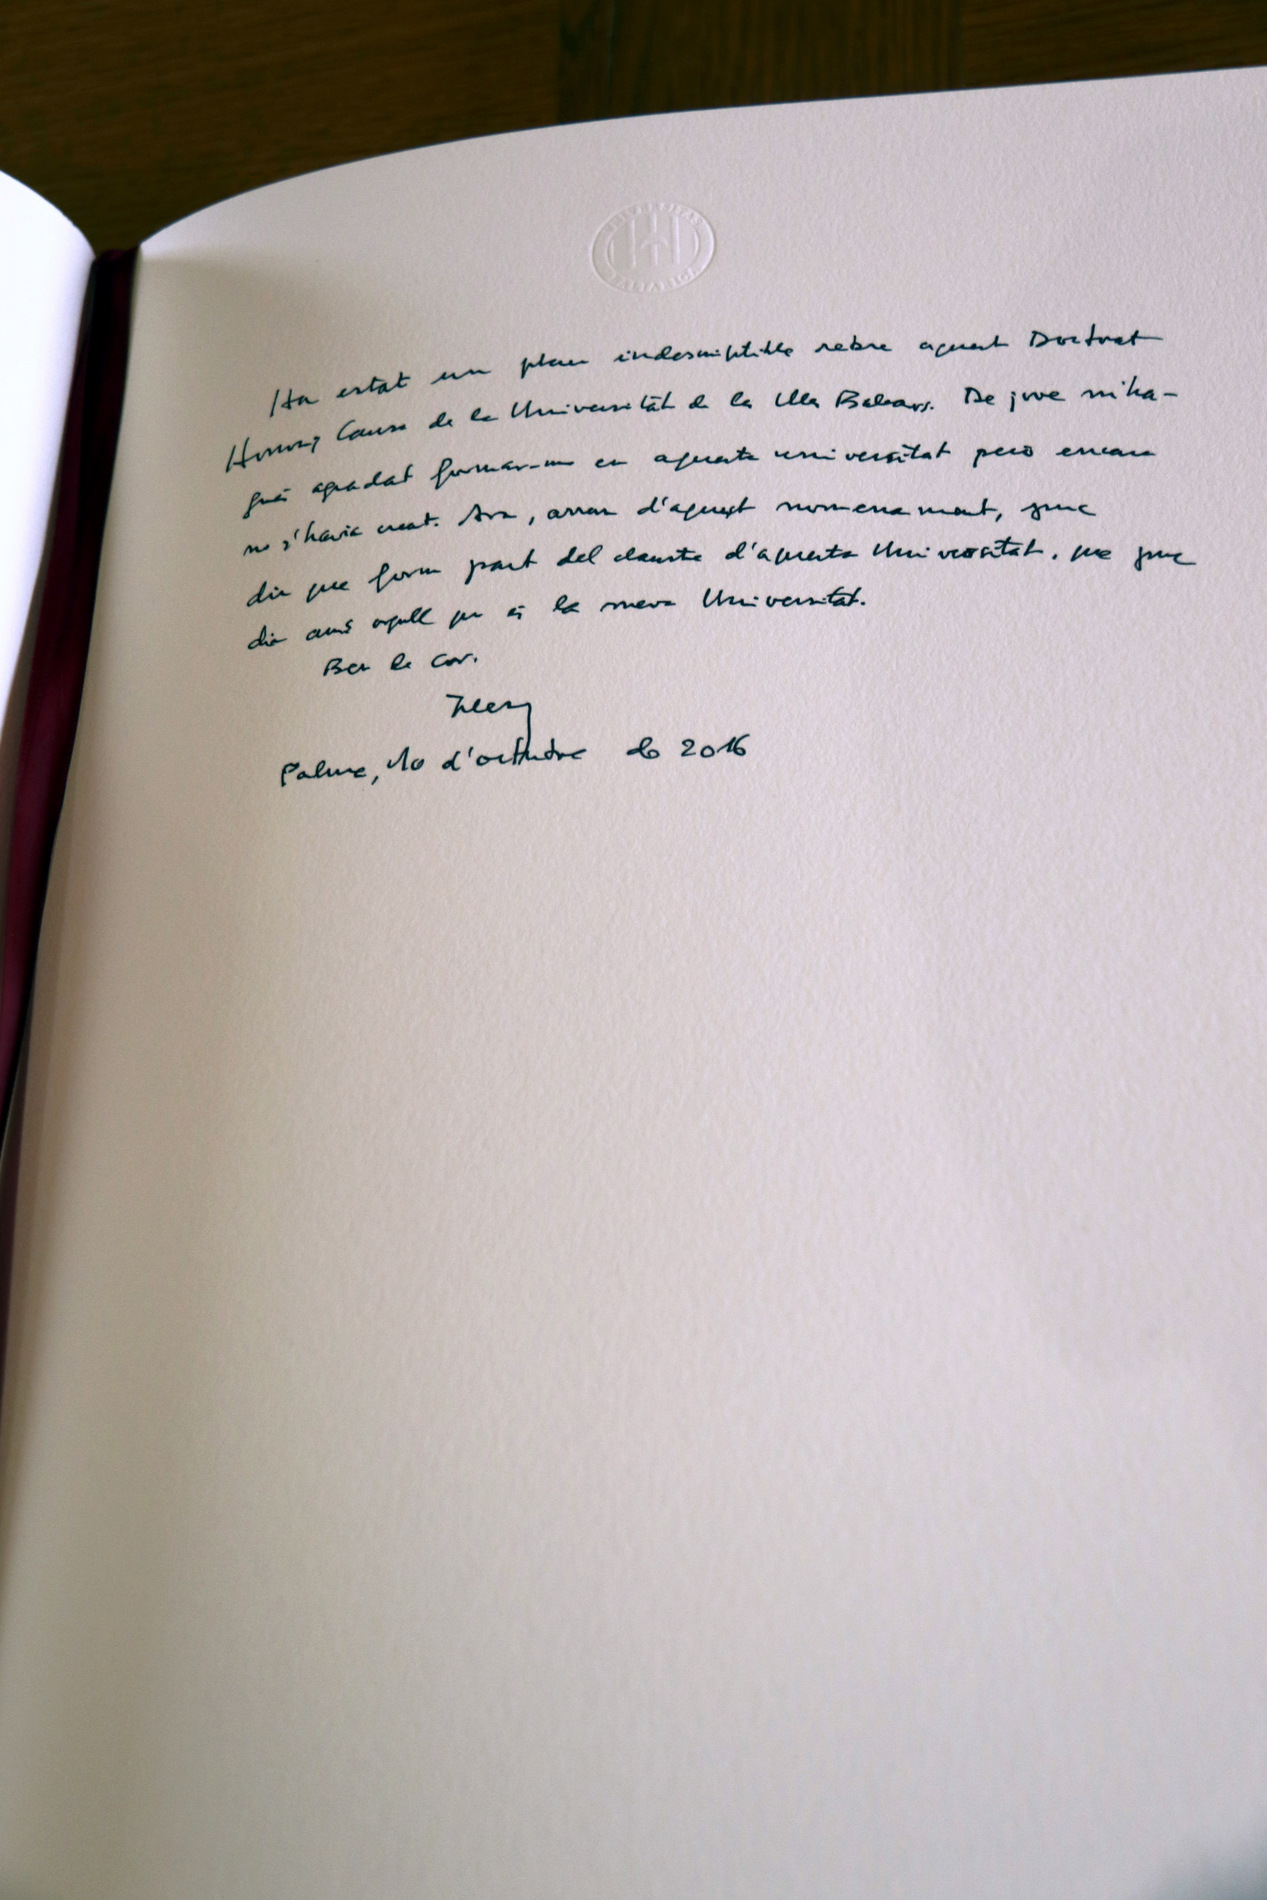 UNIVERSITAS
BALEARICA
Ha estat un plaer indescriptible rebre aquest Doctorat
Honoris Causa de la Universitat de les Illes Balears. De jove m'ha-
gués agradat formar-me en aquesta universitat però encara
no s'havia creat. Ara, arran d'aquest nomenament, puc
dir que form part del claustre d'aquesta Universitat. que puc
dir amb orgull que és la meva Universitat.
Ben de cor.
Palma, 10 d'octubre de 2016